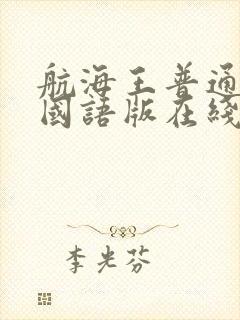 航海王普通
國語版在綫
李光芬